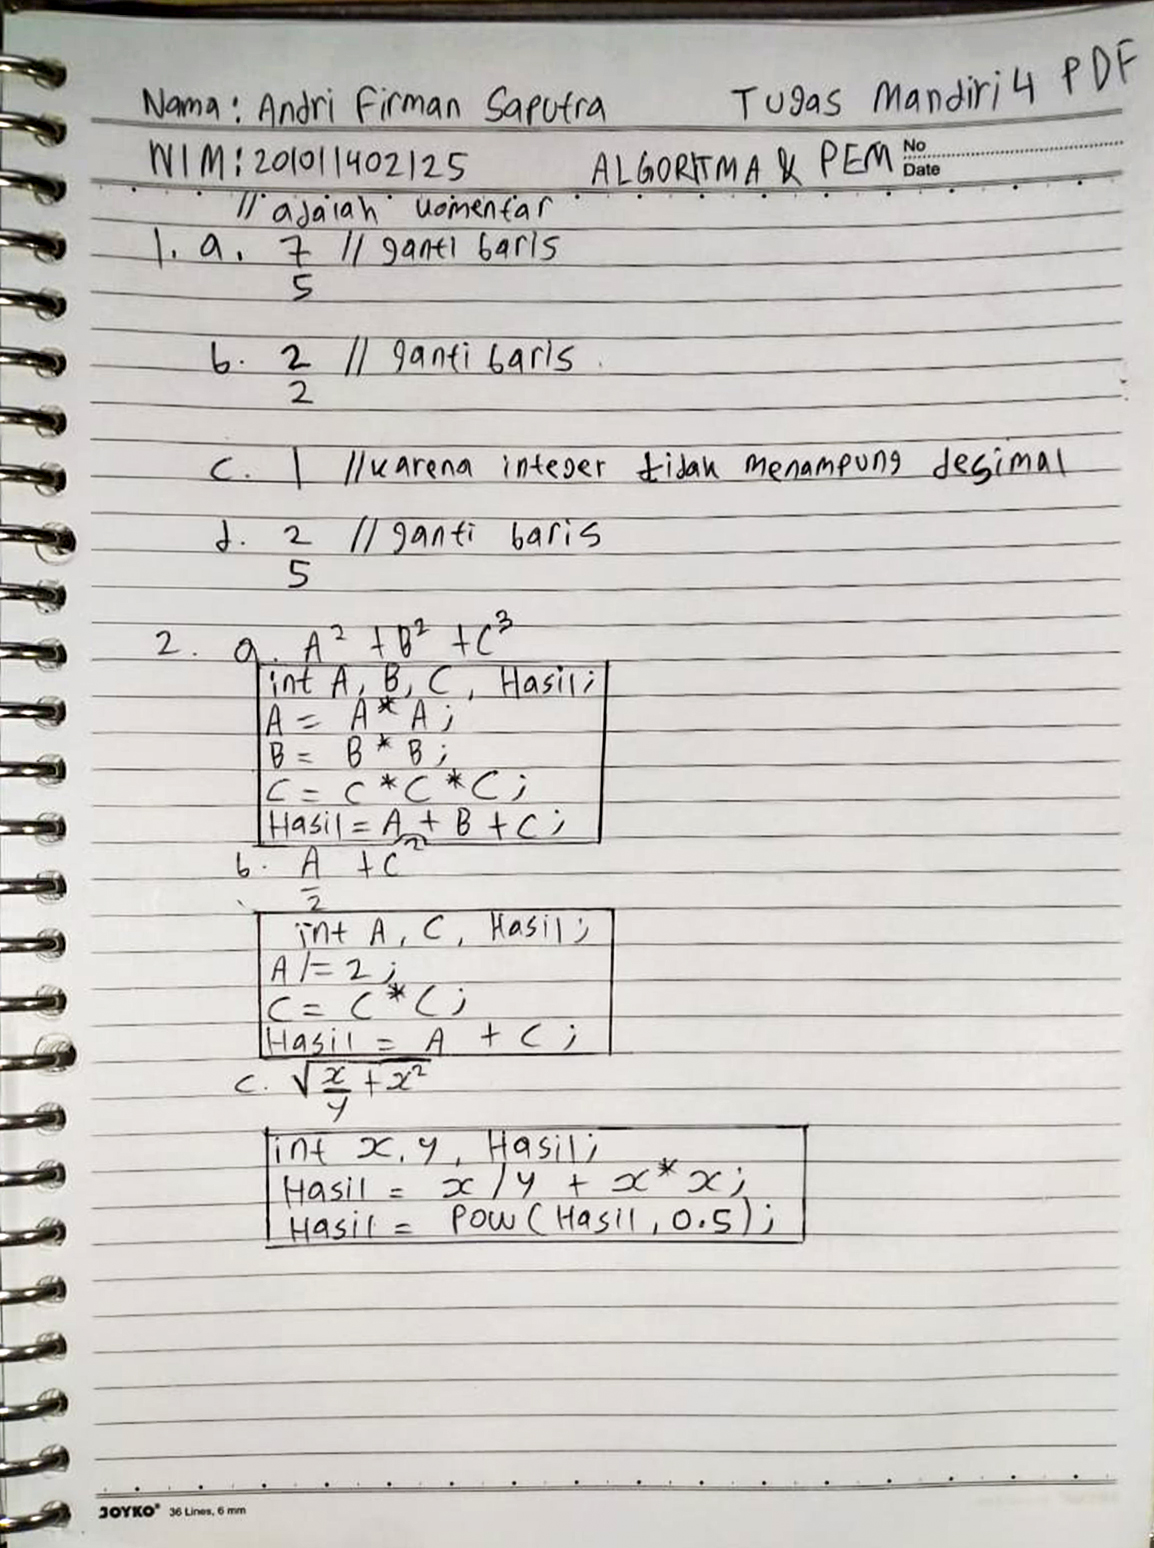 Nama : Andri Firman Saputra Tugas Mandiri 4 PDF
NIM : 201011402125 ALGORITMA & PEM No
Date
// adalah komentar
1. a. 7 // ganti baris
5
b. 2 // ganti baris
2
c. 1 // karena integer tidak menampung desimal
d. 2 // ganti baris
5
2. a. A² + B² + C³
int A, B, C, Hasil;
A = A * A;
B = B * B;
C = C * C * C;
Hasil = A + B + C;
b. A/2 + C²
int A, C, Hasil;
A /= 2;
C = C * C;
Hasil = A + C;
c. √(x/y + x²)
int x, y, Hasil;
Hasil = x / y + x * x;
Hasil = pow(Hasil, 0.5);
JOYKO® 36 Lines, 6 mm